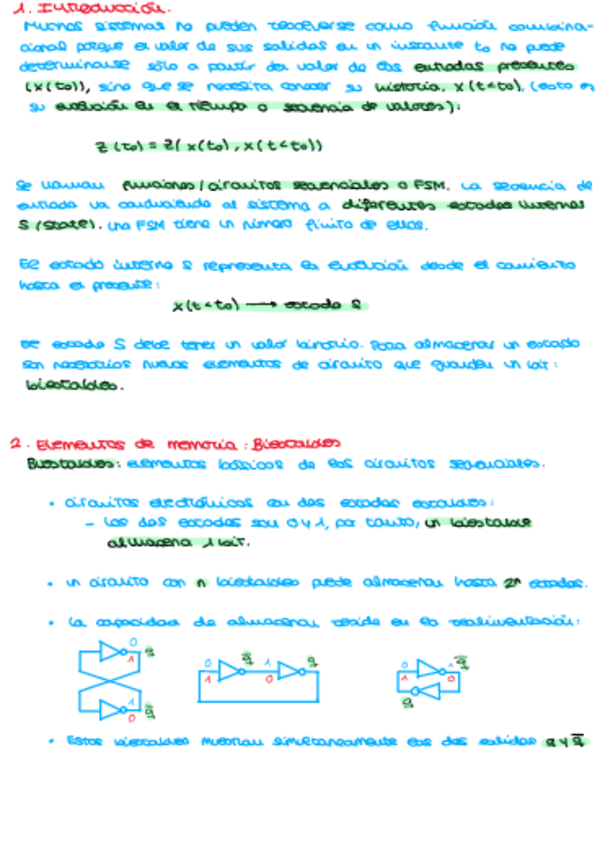 1. Introducción.
Muchos sistemas no pueden resolverse como función combina-
cional porque el valor de sus salidas en un instante to no puede
determinarse sólo a partir del valor de las entradas presentes
(x(to)), sino que se necesita conocer su historia, x(t<to), (esto es
su evolución en el tiempo o secuencia de valores):
Z(to) = Z(x(to), x(t<to))
Se llaman funciones/circuitos secuenciales o FSM. La secuencia de
entrada va conduciendo al sistema a diferentes estados internos
S (state). Una FSM tiene un número finito de ellos.
El estado interno S representa la evolución desde el comienzo
hasta el presente:
x(t<to) → estado S
El estado S debe tener un valor binario. Para almacenar un estado
son necesarios nuevos elementos de circuito que guarden un bit:
biestables.
2. Elementos de memoria: Biestables
Biestables: elementos básicos de los circuitos secuenciales.
• Circuitos electrónicos con dos estados estables:
- Los dos estados son 0 y 1, por tanto, un biestable
almacena 1 bit.
• Un circuito con n biestables puede almacenar hasta 2ⁿ estados.
• La capacidad de almacenar reside en la realimentación:
0 1 q
1 0 q̅
0 1 q̅ 1 0 q
0 1 1 0 q̅ q
• Estos biestables muestran simultáneamente las dos salidas q y q̅